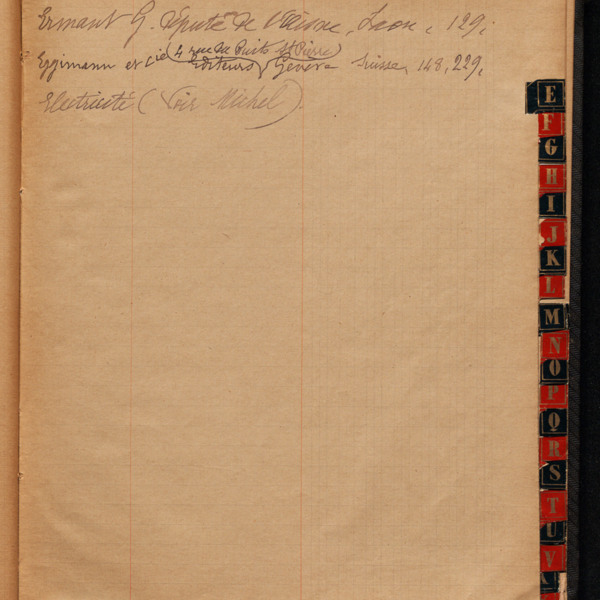 Ermant G. Député de l'Aisne, Laon, 129,
(4 rue du Puits St Pierre)
Eggimann et Cie Editeurs, Genève Suisse, 148, 229,
Electricité (Voir Michel)
E
F
G
H
I
J
K
L
M
N
O
P
Q
R
S
T
U
V